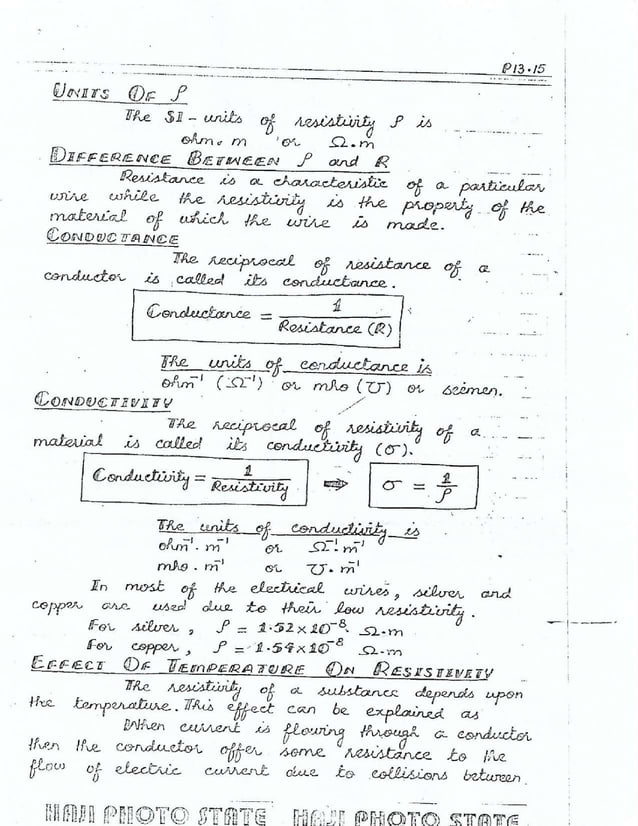 P13.15
UNITS OF ρ
The SI-units of resistivity ρ is
ohm.m or Ω.m
DIFFERENCE BETWEEN ρ and R
Resistance is a characteristic of a particular
wire while the resistivity is the property of the
material of which the wire is made.
CONDUCTANCE
The reciprocal of resistance of a
conductor is called its conductance.
Conductance = 1 / Resistance (R)
The units of conductance is
ohm⁻¹ (Ω⁻¹) or mho (℧) or seimen.
CONDUCTIVITY
The reciprocal of resistivity of a
material is called its conductivity (σ).
Conductivity = 1 / Resistivity ⇒ σ = 1/ρ
The units of conductivity is
ohm⁻¹. m⁻¹ or Ω⁻¹. m⁻¹
mho. m⁻¹ or ℧. m⁻¹
In most of the electrical wires, silver and
copper are used due to their low resistivity.
For silver, ρ = 1.52×10⁻⁸ Ω.m
For copper, ρ = 1.54×10⁻⁸ Ω.m
EFFECT OF TEMPERATURE ON RESISTIVITY
The resistivity of a substance depends upon
the temperature. This effect can be explained as
When current is flowing through a conductor
then the conductor offer some resistance to the
flow of electric current due to collisions between
HAJI PHOTO STATE HAJI PHOTO STATE